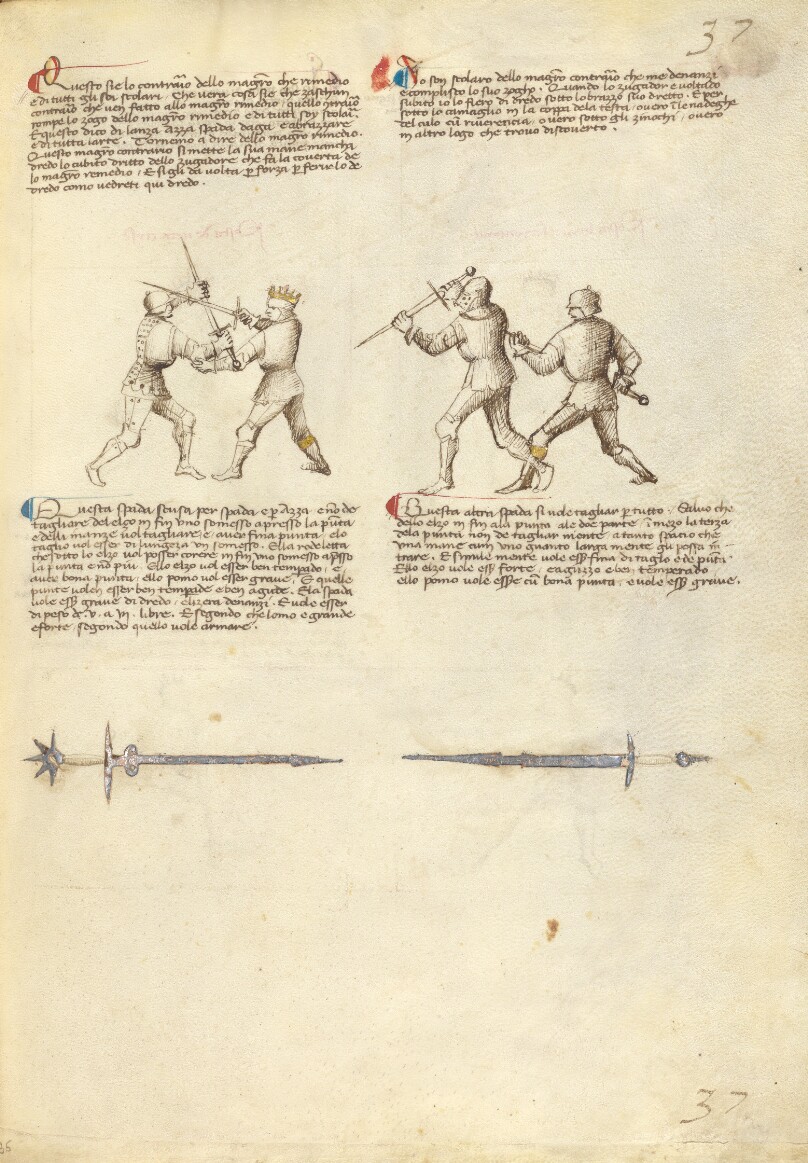 37
Questo sie lo contrario dello magro che remedio
e di tutti gli soy scolari. Che vera cosa sie che zaschun
contrario che ven fatto allo magro rimedio, quello contrario
rompe lo zogo dello magro rimedio e di tutti soy scolari.
E questo dico di lanza Azza spada daga e abrazzare
e di tutta larte. Tornemo a dire dello magro rimedio.
Questo magro contrario si mette la sua mane mancha
dredo lo cubito dritto dello zugadore che fa la coverta de
lo magro remedio / E si gli da volta per forza per ferirlo de
dredo como vedreti qui dredo.
Io son scolaro dello magro contrario che me denanzi
e complisco lo suo zogho. Quando lo zugador e voltado
subito io lo fiero di dredo sotto lo brazzo suo dretto. E per
sotto lo camaglio in la coppa dela testa, overo i le nadeghe
del culo cum riverencia, overo sotto gli zinochi, overo
in altro logo che trovo discoverto.
Questa spada sousa per spada e per Azza eno de
tagliare del elzo in fin uno somesso apresso la punta
e delli inanze vol tagliare, e aver fina punta, elo
taglio vol esser di lungeza un somesso. Ella rodeletta
che sotto lo elzo vol posser corere in fin uno somesso apresso
la punta e no piu. Ello elzo vol esser ben tempado, e
aver bona punta, ello pomo vol esser grave. E quelle
punte volen esser ben temprade e ben agude. Ela spada
vole esser grave di dredo, elizera denanzi. E vole esser
di peso de .v. a .vij. libre. E segondo che lomo e grande
e forte, segondo quello vole armare.
Questa altra spada si vole tagliar per tutto. Salvo che
dello elzo in fin ala punta ale doe parte, i mezo la terza
dela punta non de tagliar mente, a tanto spacio che
una mane cum uno guanto larga mente gli possa in-
trare. E simile mente vole esser fina di taglo e de punta
Ello elzo vole esser forte, e aguzzo e ben temperado
ello pomo vole esse cum bona punta, e vole esser grave.
37